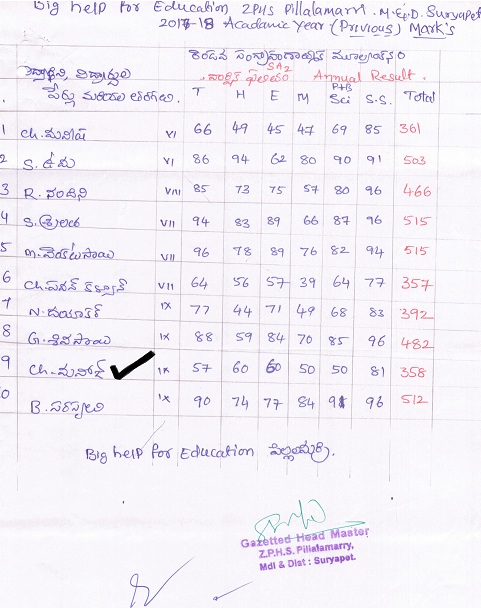 Big help for Education ZPHS Pillalamarri. M&D. Suryapet
2017-18 Acadamic Year (Previous) Mark's
SA2
Annual Result.
పేర్లు మరియు తరగతి. T H E M P+B Sci S.S. Total
1 Ch. మనీష VI 66 49 45 47 69 85 361
2 S. ఉమ VI 86 94 62 80 90 91 503
3 R. నందిని VIII 85 73 75 57 80 96 466
4 S. శ్రీలత VII 94 83 89 66 87 96 515
5 m. VII 96 78 89 76 82 94 515
6 Ch. పవన్ కళ్యాణ్ VII 64 56 57 39 64 77 357
7 N. దయాకర్ IX 77 44 71 49 68 83 392
8 G. శివసాయి IX 88 59 84 70 85 96 482
9 Ch. మనోజ్ IX 57 60 60 50 50 81 358
0 B. IX 90 74 77 84 91 96 512
Big help for Education పిల్లలమర్రి.
Gazetted Head Master
Z.P.H.S. Pillalamarry,
Mdl & Dist : Suryapet.